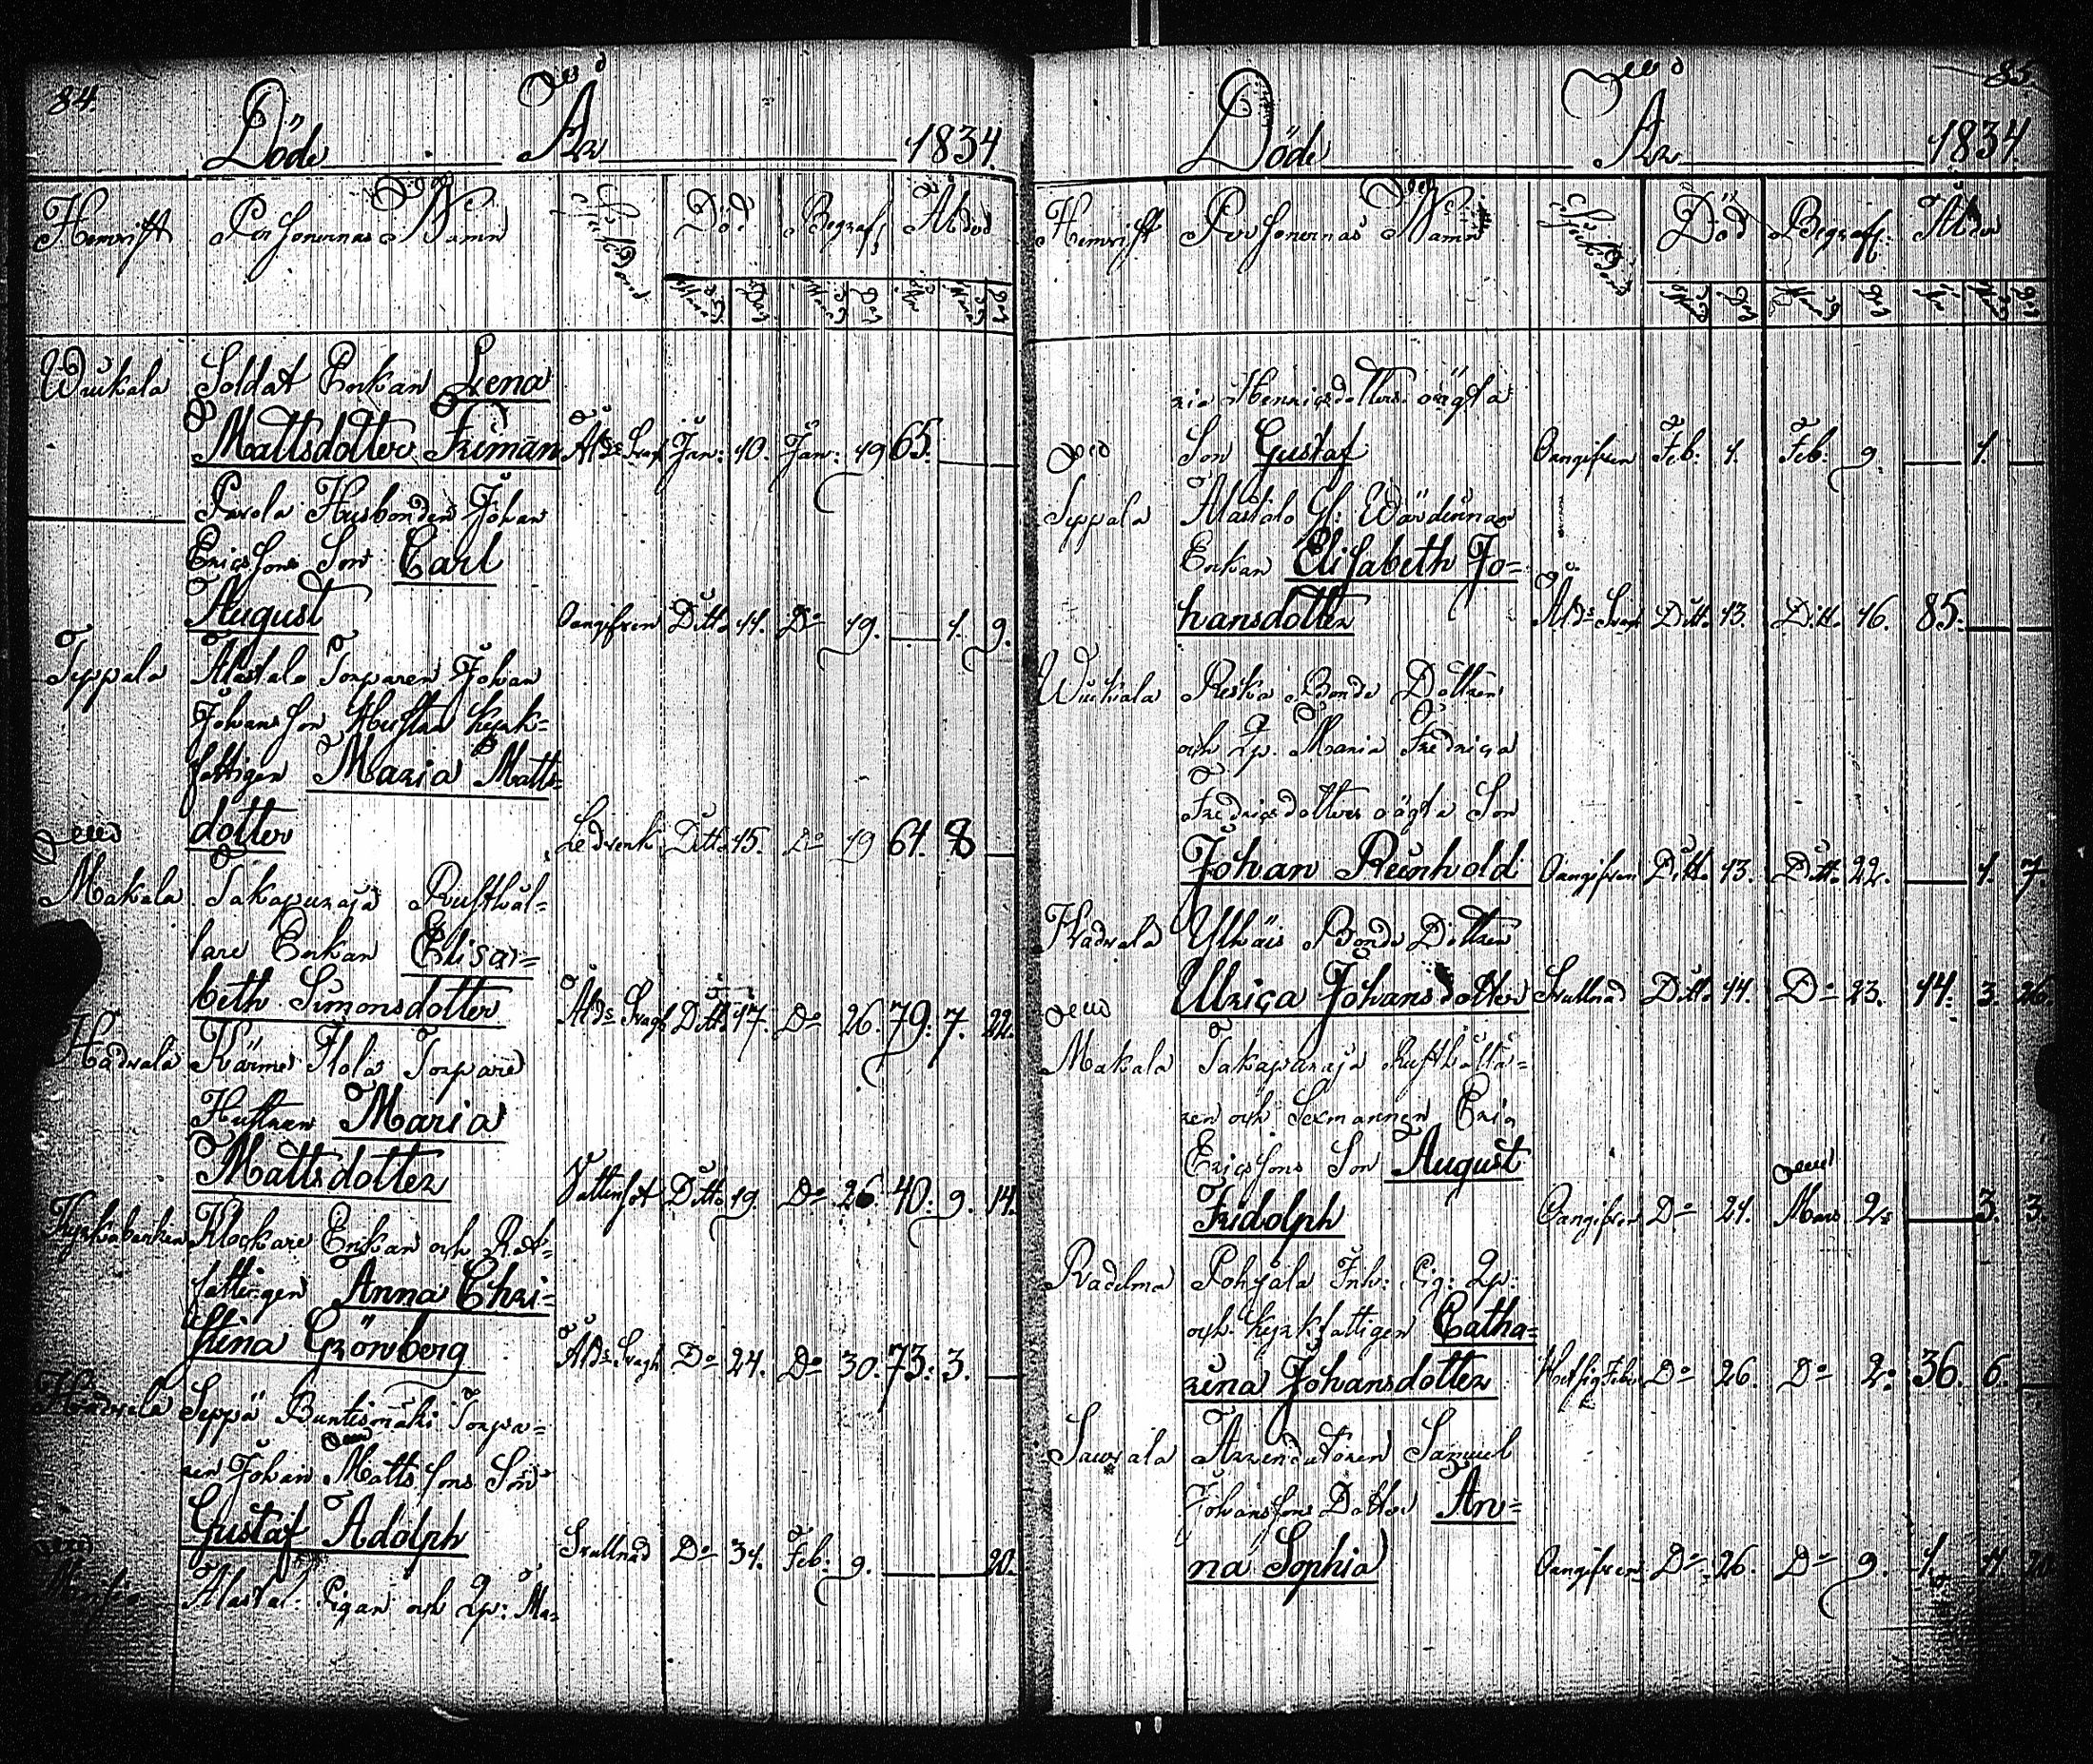 84
Döde År 1834
Hemvist Personernas Namn Sjukdomen Död Begraf: Ålder
Månad Dag Månad Dag År Månad Dag
Wuikala Soldat Enkan Lena
Mattsdotter Friman Ålds Svagh Jan: 10. Jan: 19 65.
Pavola Husbonden Johan
Ericssons Son Carl
August Oangifven Ditto 11. Do 19. 1. 9.
Seppala Alastalo Torparen Johan
Johansson Hustru kyrk=
fattigen Maria Matts=
dotter Ledverk Ditto 15. Do 19 61. 8
Makala Takapuraja Rusthål=
lare Enkan Elisa=
beth Simonsdotter Ålds Svagh Ditto 17. Do 26. 79. 7. 22.
Hadvala Kärme Torpare
Hustrun Maria
Mattsdotter Vattusot Ditto 19. Do 26. 40. 9. 14.
Kyrkobacken Klockare Enkan och Rot=
fattigen Anna Chri=
stina Grönberg Ålds Svagh Do 24. Do 30. 73. 3.
Hadvala Seppä Torpa=
ren Johan Mattssons Son
Gustaf Adolph Svullnad Do 31. Feb: 9. 20.
Alastal. Pigan och Qp: Ma=
85
Döde År 1834
Hemvist Personernas Namn Sjukdomen Död Begraf: Ålder
Månad Dag Månad Dag År Månad Dag
ria Henricsdotters oägta
Son Gustaf Oangifven Feb: 1. Feb: 9 1.
Seppala Alastalo Gl: Wärdinnan
Enkan Elisabeth Jo=
hansdotter Ålds Svagh Ditto 13. Ditto 16. 85.
Wuikala Reska Bonde Dottren
och Qp. Maria Fredrica
Fredricsdotters oägta Son
Johan Reinhold Oangifven Ditto 13. Ditto 22. 1. 7.
Hadvala Ylhäis Bonde Dottren
Ulrica Johansdotter Svullnad Ditto 14. Do 23. 14. 3. 26.
Makala Takapuraja Rusthålla=
ren och Sexmannen Eric
Ericssons Son August
Fridolph Oangifven Do 21. Mars 2. 3. 3.
Raadelma Pohjala Inh: Pig: Qp:
och kyrkfattigen Catha=
rina Johansdotter Hetsig Feber Do 26. Do 2. 36. 6.
Sauvala Arrendatoren Samuel
Johanssons Dotter An=
na Sophia Oangifven Do 26. Do 9. 1. 11. 20